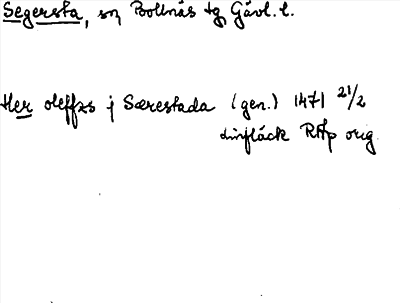 Segersta, sn, Bollnäs tg Gävl. l.
Her oleffxs j Særestada (gen.) 1471 21/2
Linjfläck RAp orig